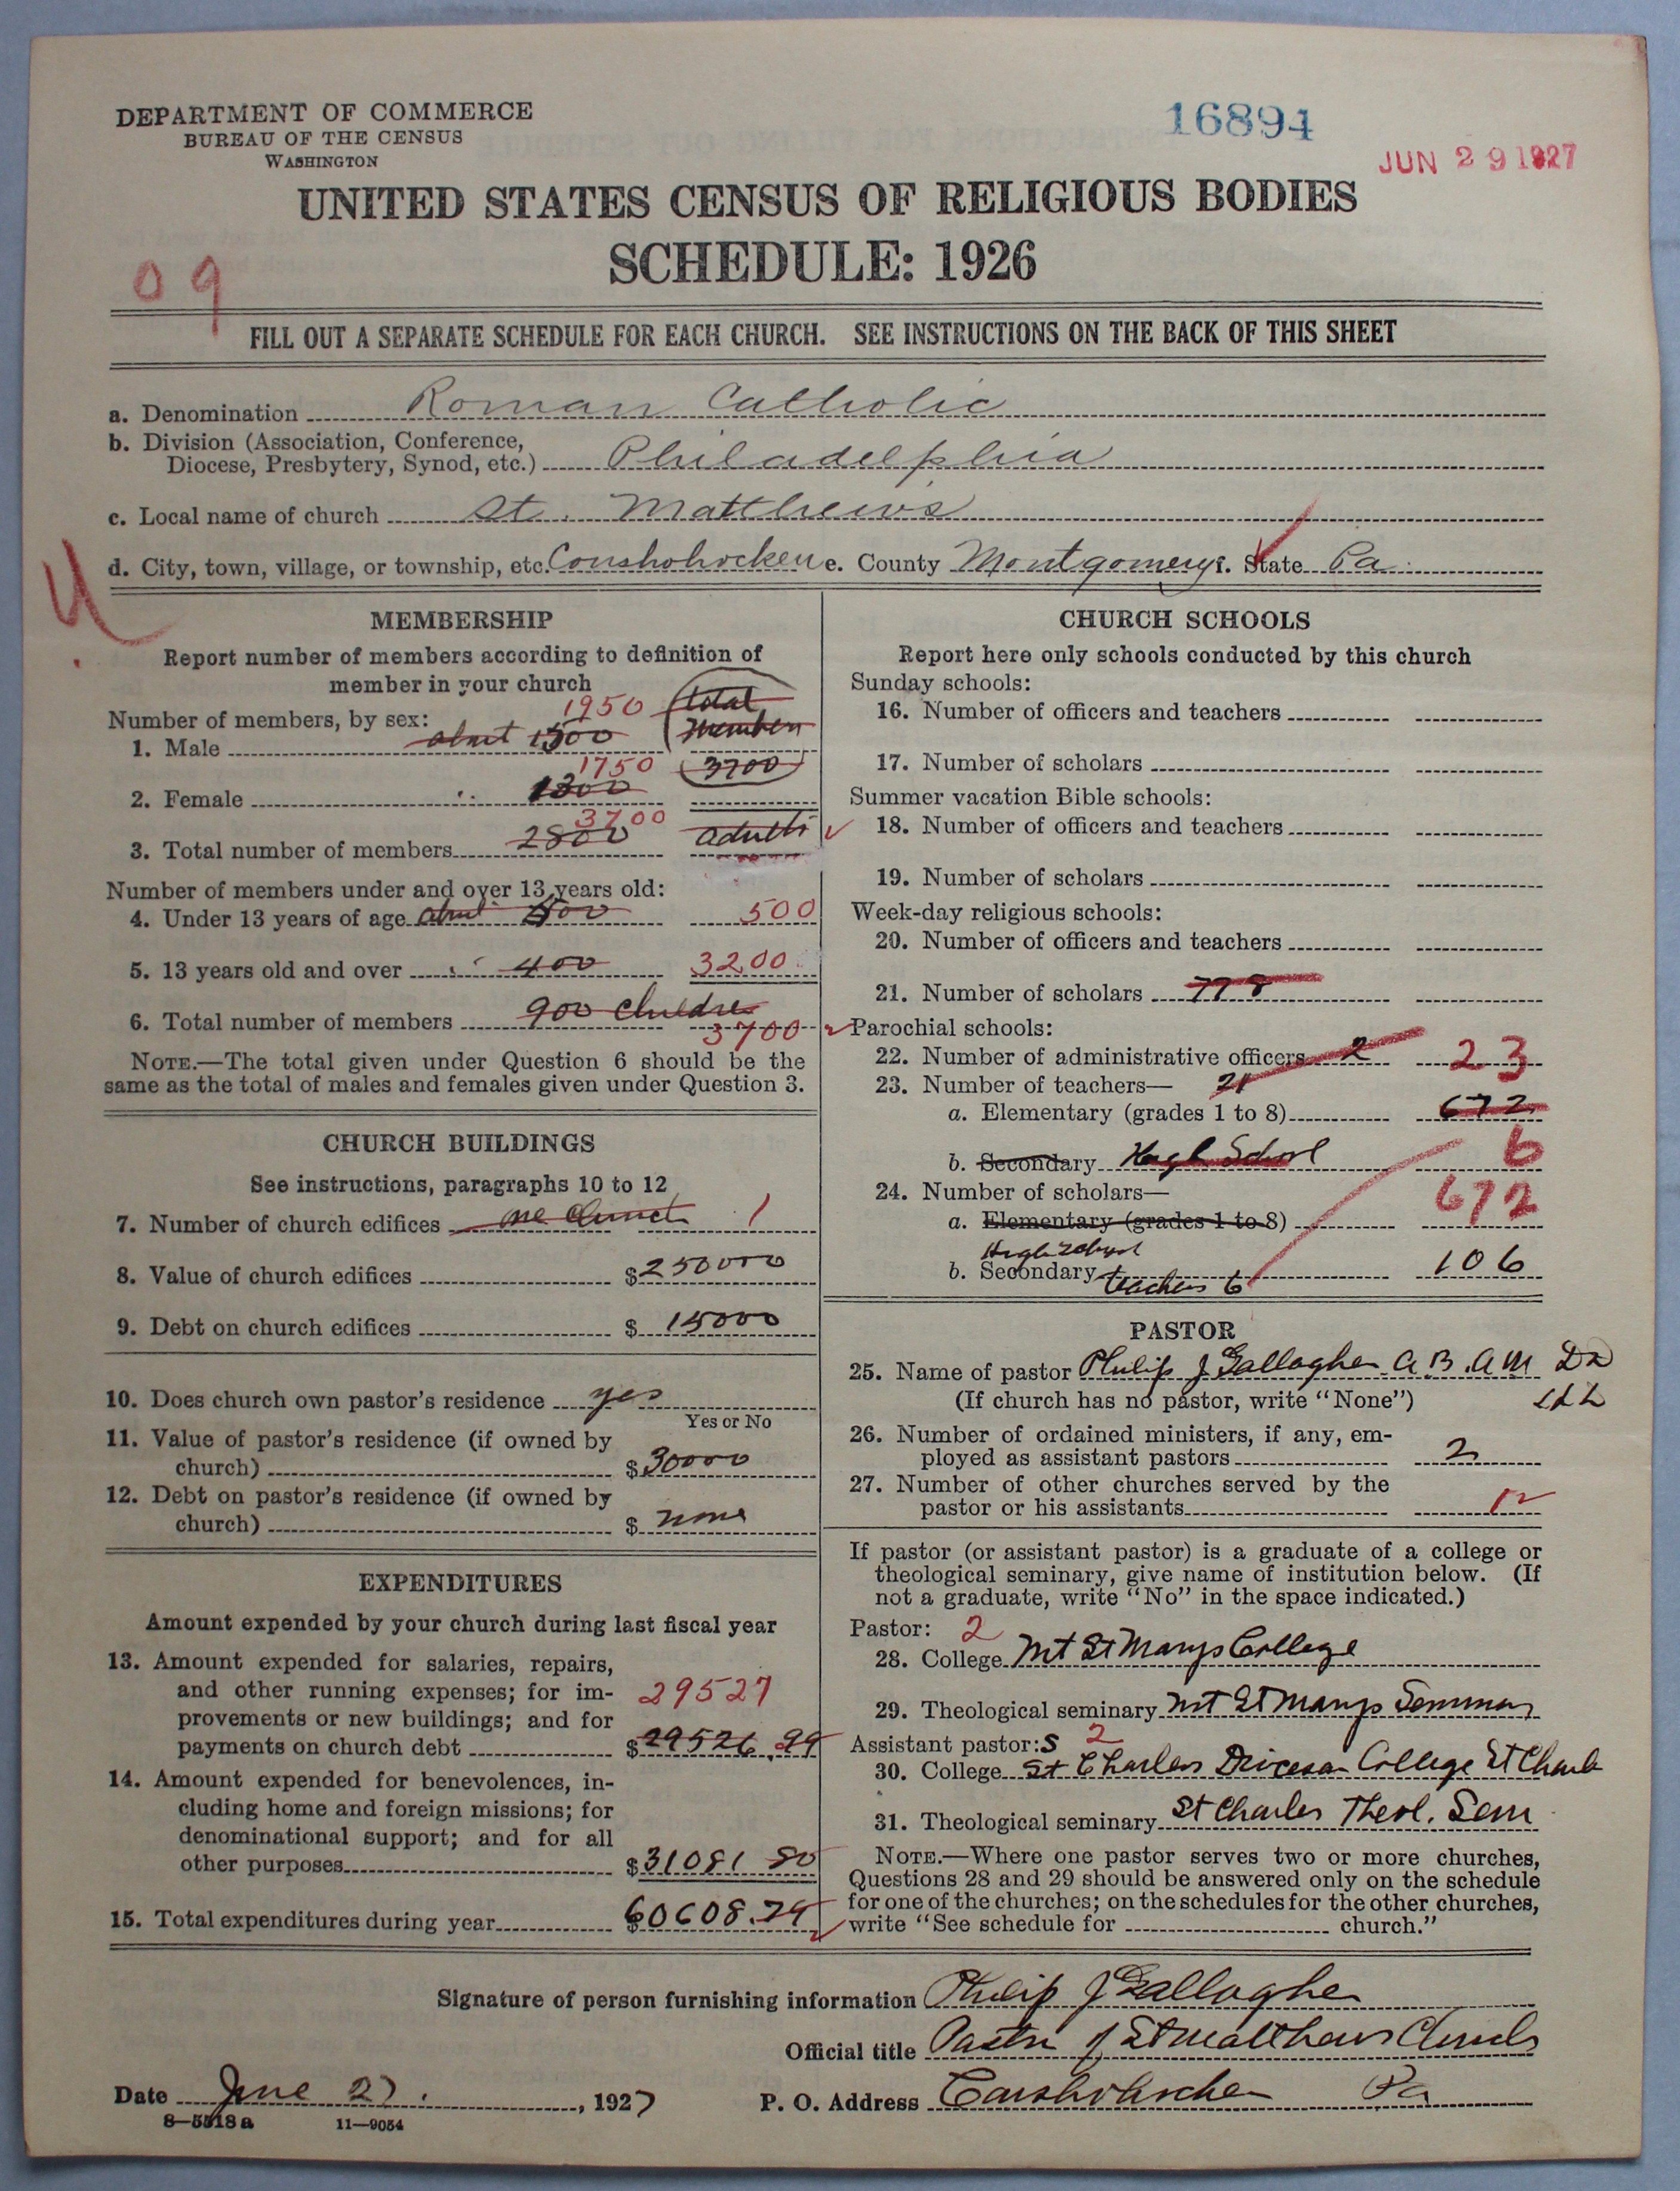 DEPARTMENT OF COMMERCE
BUREAU OF THE CENSUS
WASHINGTON
16894
JUN 29 1927
UNITED STATES CENSUS OF RELIGIOUS BODIES
SCHEDULE: 1926
09
FILL OUT A SEPARATE SCHEDULE FOR EACH CHURCH. SEE INSTRUCTIONS ON THE BACK OF THIS SHEET
a. Denomination Roman Catholic
b. Division (Association, Conference,
Diocese, Presbytery, Synod, etc.) Philadelphia
c. Local name of church St. Matthew's
d. City, town, village, or township, etc. Conshohocken e. County Montgomery f. State Pa.
MEMBERSHIP
Report number of members according to definition of
member in your church
Number of members, by sex: 1950 total
1. Male about 1500 members
1750 3700
2. Female " 1300
3700
3. Total number of members 2800 adults
Number of members under and over 13 years old:
4. Under 13 years of age about 500 500
5. 13 years old and over " 400 3200
6. Total number of members 900 children
3700
NOTE.—The total given under Question 6 should be the
same as the total of males and females given under Question 3.
CHURCH BUILDINGS
See instructions, paragraphs 10 to 12
7. Number of church edifices one church 1
8. Value of church edifices $250000
9. Debt on church edifices $ 15000
10. Does church own pastor's residence yes
Yes or No
11. Value of pastor's residence (if owned by
church) $30000
12. Debt on pastor's residence (if owned by
church) $ none
EXPENDITURES
Amount expended by your church during last fiscal year
13. Amount expended for salaries, repairs,
and other running expenses; for im-
provements or new buildings; and for
29527
payments on church debt $29526.99
14. Amount expended for benevolences, in-
cluding home and foreign missions; for
denominational support; and for all
other purposes $31081 80
15. Total expenditures during year $60608.79
CHURCH SCHOOLS
Report here only schools conducted by this church
Sunday schools:
16. Number of officers and teachers
17. Number of scholars
Summer vacation Bible schools:
18. Number of officers and teachers
19. Number of scholars
Week-day religious schools:
20. Number of officers and teachers
21. Number of scholars 778
Parochial schools:
22. Number of administrative officers 2 23
23. Number of teachers— 21
a. Elementary (grades 1 to 8) 672
b. Secondary High School 6
24. Number of scholars— 672
a. Elementary (grades 1 to 8)
High School
b. Secondary teachers 6 106
PASTOR
25. Name of pastor Philip J Gallagher A.B. A M DD
(If church has no pastor, write "None") LLD
26. Number of ordained ministers, if any, em-
ployed as assistant pastors 2
27. Number of other churches served by the
pastor or his assistants 1
If pastor (or assistant pastor) is a graduate of a college or
theological seminary, give name of institution below. (If
not a graduate, write "No" in the space indicated.)
Pastor: 2
28. College Mt St Marys College
29. Theological seminary Mt St Marys Seminary
Assistant pastor:s 2
30. College St Charles Diocesan College St Charles
31. Theological seminary St Charles Theol. Sem
NOTE.—Where one pastor serves two or more churches,
Questions 28 and 29 should be answered only on the schedule
for one of the churches; on the schedules for the other churches,
write "See schedule for church."
Signature of person furnishing information Philip J Gallagher
Official title Pastor of St Matthews Church
Date June 27, 1927 P. O. Address Conshohocken Pa
8—5518a 11—9054